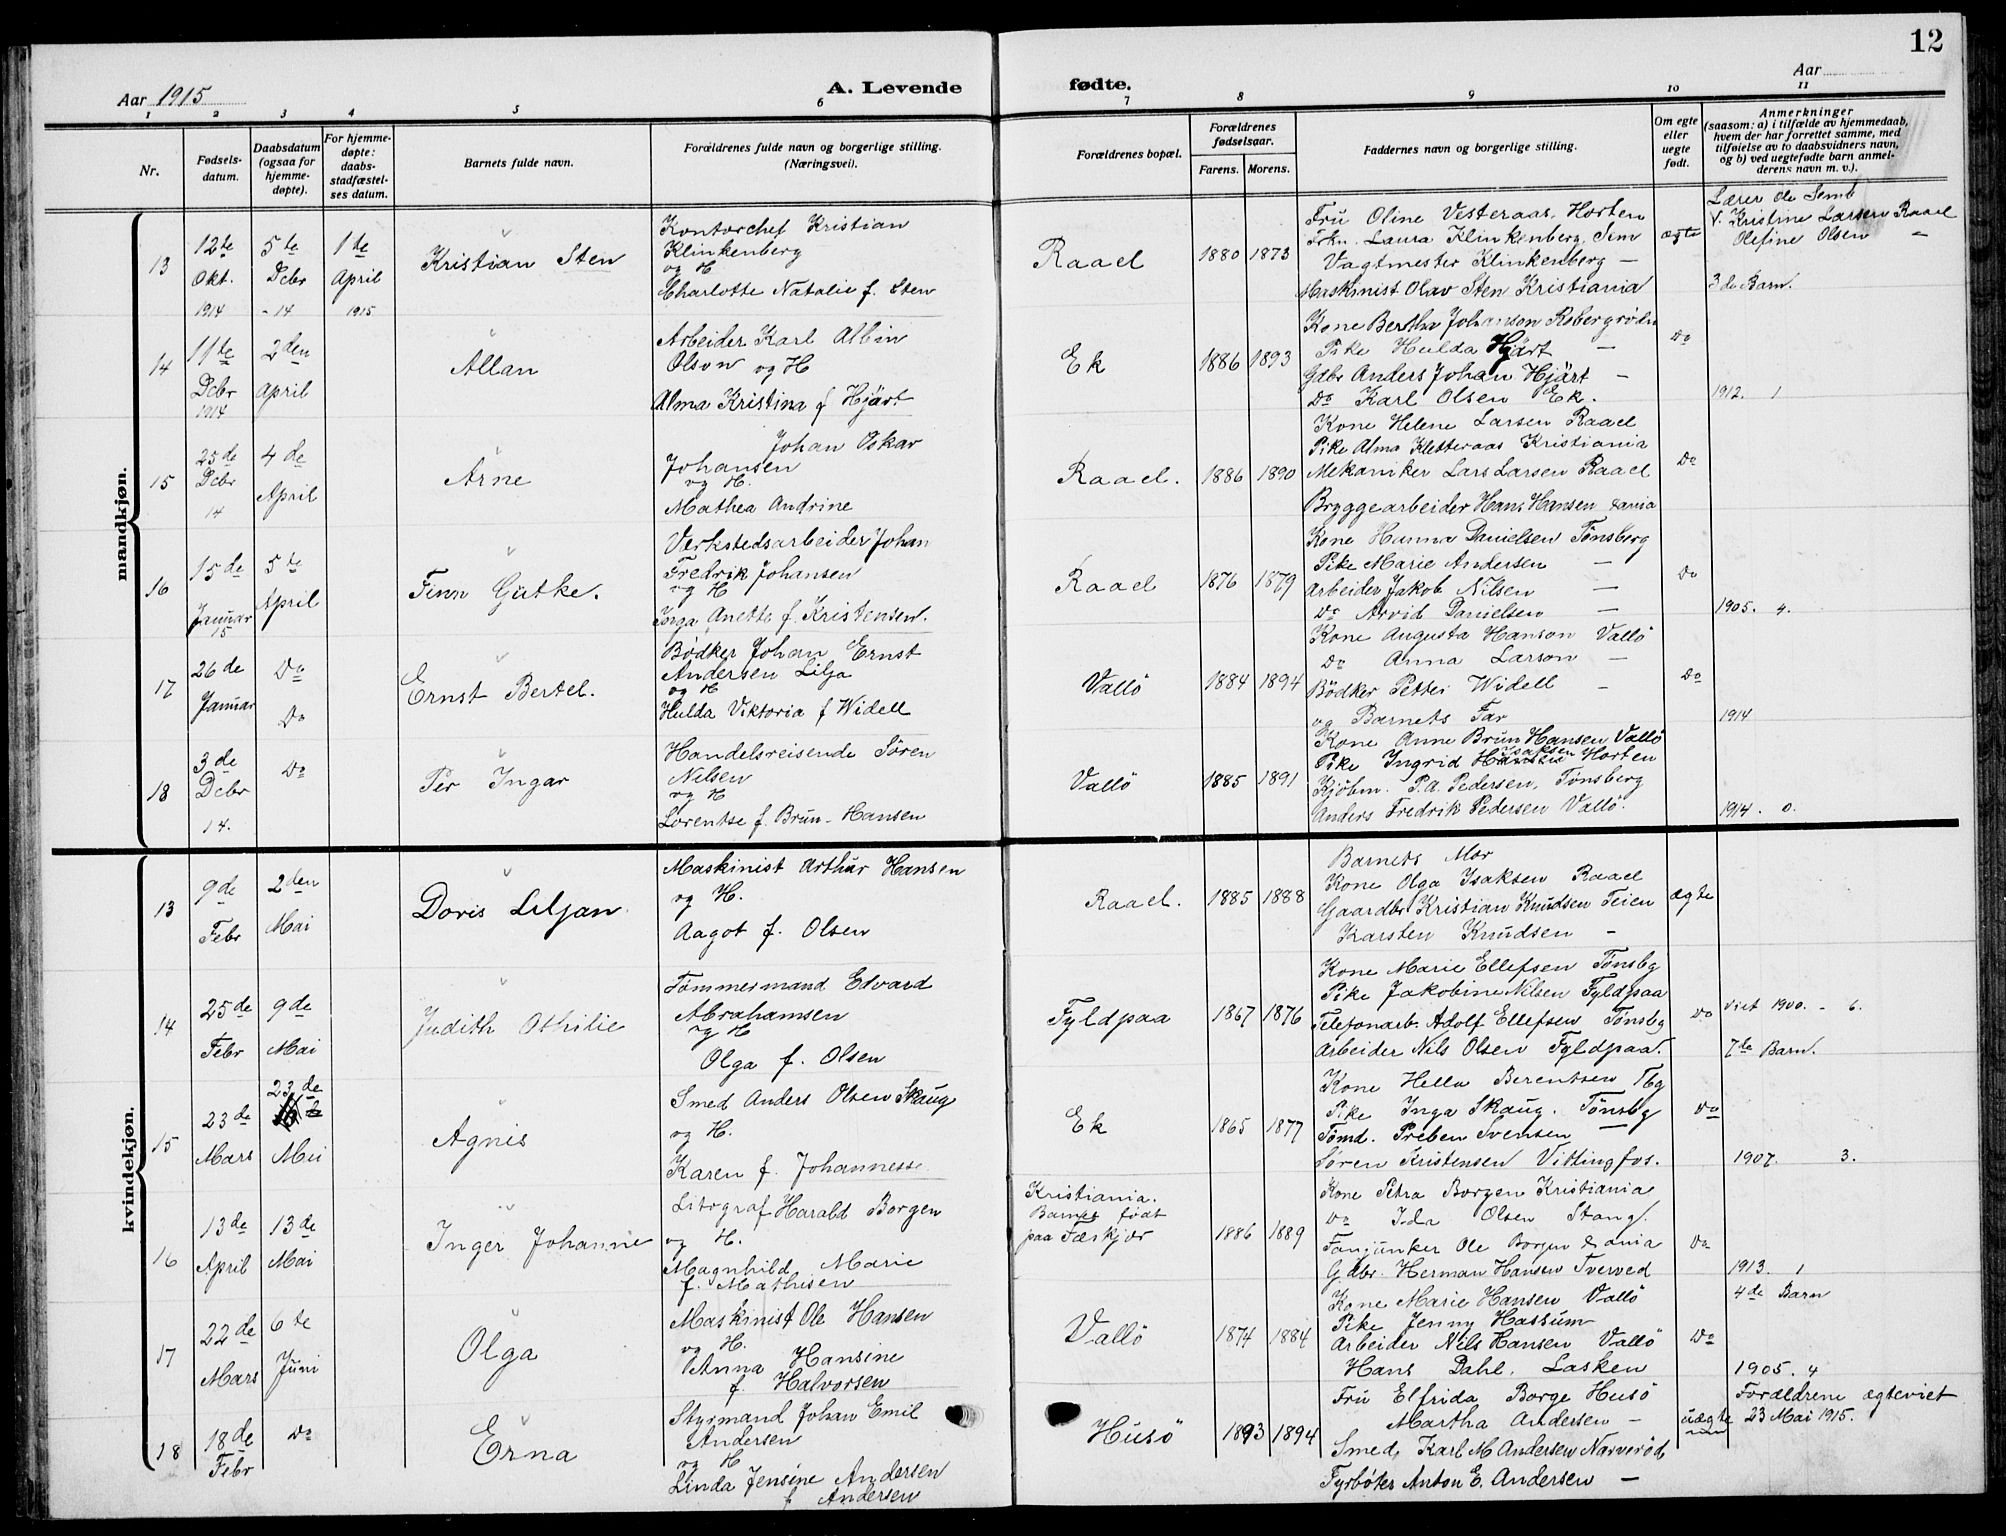 12
Aar 1915
A. Levende fødte.
Aar
1 2 3 4 5 6 7 8 9 10 11
Nr.
Fødsels-
datum.
Daabsdatum
(ogsaa for
hjemme-
døpte).
For hjemme-
døpte:
daabs-
stadfæstel-
ses datum.
Barnets fulde navn.
Forældrenes fulde navn og borgerlige stilling.
(Næringsvei).
Forældrenes bopæl.
Forældrenes
fødselsaar.
Farens. Morens.
Faddernes navn og borgerlige stilling.
Om egte
eller
uegte
født.
Anmerkninger
(saasom: a) i tilfælde av hjemmedaab,
hvem der har forrettet samme, med
tilføielse av to daabsvidners navn,
og b) ved uegtefødte barn anmel-
derens navn m. v.).
mandkjøn.
13
12te
Okt.
1914
5te
Dcbr
- 14
1te
April
1915
Kristian Sten
Kontorchef Kristian
Klinkenberg
og H
Charlotte Natalie f. Sten
Raael
1880 1873
Fru Oline Vesteraas, Horten
Frkn. Laura Klinkenberg, Sem
Vagtmester Klinkenberg —
Maskinist Olav Sten Kristiania
ægte
Lærer Ole Semb
V. Kristine Larsen Raael
Olefine Olsen —
3de Barn.
14
11te
Dcbr
1914
2den
April
Allan
Arbeider Karl Albin
Olson og H
Alma Kristina f Hjärt
Ek
1886 1893
Kone Bertha Johanson Robergrødn
Pike Hulda Hjärt —
Gdbr Anders Johan Hjärt —
Do Karl Olsen Ek.
Do
1912. 1
15
25de
Dcbr
14
4de
April
Arne
Johan Oskar
Johansen
og H.
Mathea Andrine
Raael.
1886 1890
Kone Helene Larsen Raael
Pike Alma Kletteraas Kristiania
Mekaniker Lars Larsen Raael
Bryggearbeider Hans Hansen &ania
Do
16
15de
Januar
15
5te
April
Finn Gutke.
Verkstedsarbeider Johan
Fredrik Johansen
og H
Inga Anette f. Kristensen.
Raael
1876 1879
Kone Hanna Danielsen Tønsberg
Pike Marie Andersen —
Arbeider Jakob Nilsen —
Do Arvid Danielsen —
Do
1905. 4.
17
26de
Januar
Do
Do
Ernst Bertel.
Bødker Johan Ernst
Andersen Lilja
og H
Hulda Viktoria f Widell
Vallö
1884 1894
Kone Augusta Hanson Vallö
Do Anna Larson —
Bödker Petter Widell —
og Barnets Far
Do
1914
18
3de
Dcbr
14.
Do
Per Ingar
Handelsreisende Sören
Nilsen
og H
Lorentse f. Brun-Hansen
Vallö
1885 1891
Kone Anne Brun Hansen Vallö
Pike Ingrid Isaksen Horten
Kjöbm. P.A. Pedersen, Tønsberg
Anders Fredrik Pedersen Vallö.
1914. 0.
kvindekjøn.
13
9de
Febr
2den
Mai
Doris Liljan
Maskinist Arthur Hansen
og H.
Aagot f. Olsen
Raael.
1885 1888
Barnets Mor
Kone Olga Isaksen Raael
Gaardbr. Kristian Knudsen Teien
Karsten Knudsen —
ægte
14
25de
Febr
9de
Mai
Judith Othilie
Tømmermand Edvard
Abrahamsen
og H
Olga f. Olsen
Fyldpaa
1867 1876
Kone Marie Ellefsen Tönsbg
Pike Jakobine Nilsen Fyldpaa
Telefonarb. Adolf Ellefsen Tönsbg
Arbeider Nils Olsen Fyldpaa.
Do
viet 1900. - 6.
7de Barn.
15
23de
Mars
23de
Mai
Agnis
Smed Anders Olsen Skaug
og H.
Karen f. Johannesse
Ek
1865 1877
Kone Hella Berentsen Tbg
Pike Inga Skaug. Tönsbg
Tömd. Preben Svensen —
Søren Kristensen Vittingfos.
Do
1907. 3.
16
13de
April
13de
Mai
Inger Johanne
Litograf Harald Borgen
og H.
Magnhild Marie
f. Mathisen
Kristiania.
Barnet født
paa Fæskjær
1886 1889
Kone Petra Borgen Kristiania
Do Ida Olsen Stang.
Fanjunker Ole Borgen &ania
Gdbr. Herman Hansen Tverved
Do
1913. 1
17
22de
Mars
6te
Juni
Olga
Maskinist Ole Hansen
og H.
Anna Hansine
f. Halvorsen
Vallö
1874 1884
Kone Marie Hansen Vallö
Pike Jenny Hassum
Arbeider Nils Hansen Vallö
Hans Dahl. Lasken
Do
4de Barn
1905. 4
18
18de
Febr
Do
Erna
Styrmand Johan Emil
Andersen
og H
Linda Jensine Andersen
f Andersen
Husö
1893 1894
Fru Elfrida Borge Husö
Martha Andersen —
Smed Karl M. Andersen Narverød
Fyrböter Anton E. Andersen —
uægte
Forældrene ægteviet
23 Mai 1915.